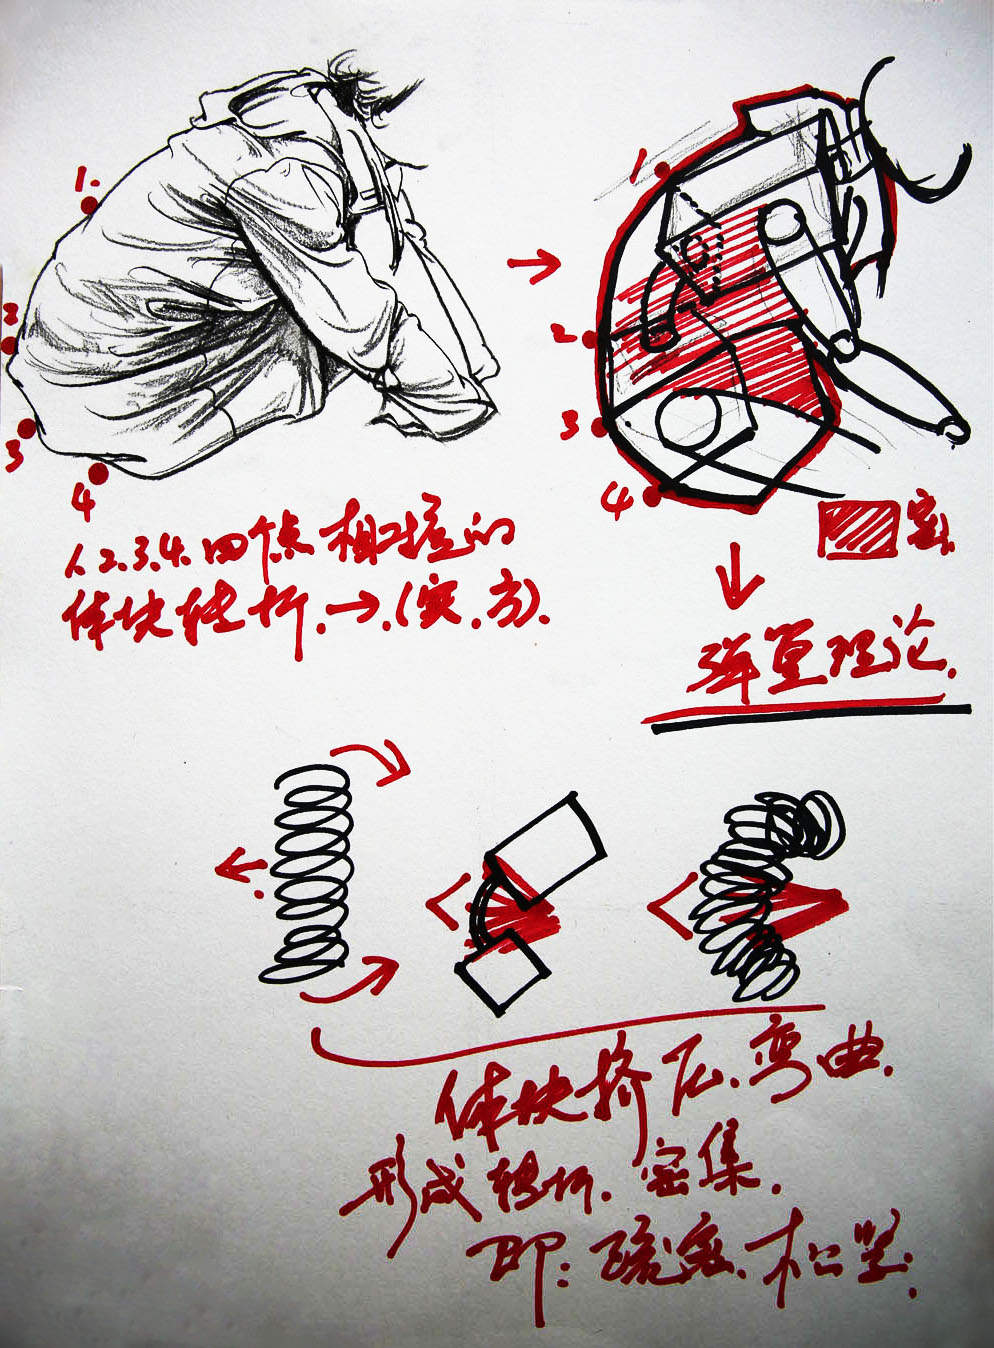 1.
2
3
4
1
2
3
4
密.
1.2.3.4.四个点相接的
体块转折.→.(实.方).
弹簧理论.
体块挤压.弯曲.
形成转折.密集.
即:疏密.松紧.